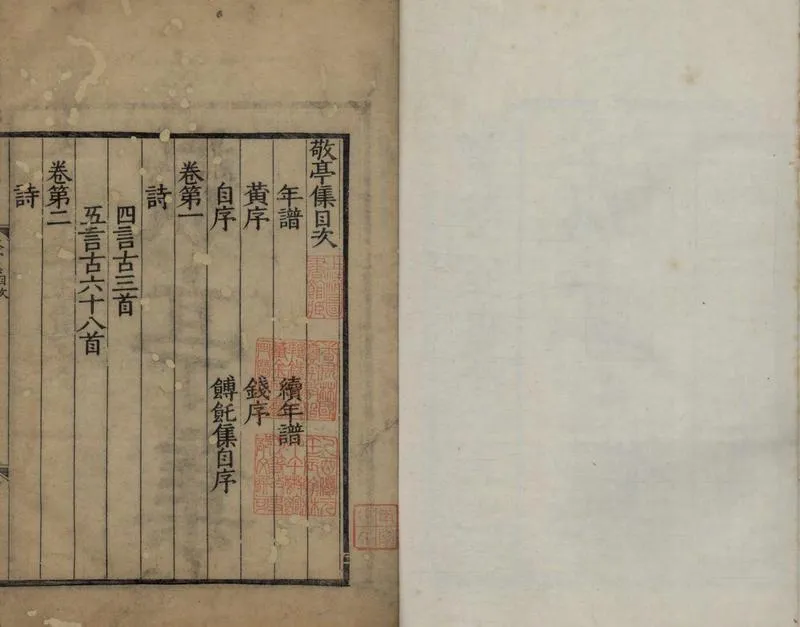 敬亭集目次
年譜 續年譜
黃序 錢序
自序 餺飥集自序
卷第一
詩
四言古三首
五言古六十八首
卷第二
詩